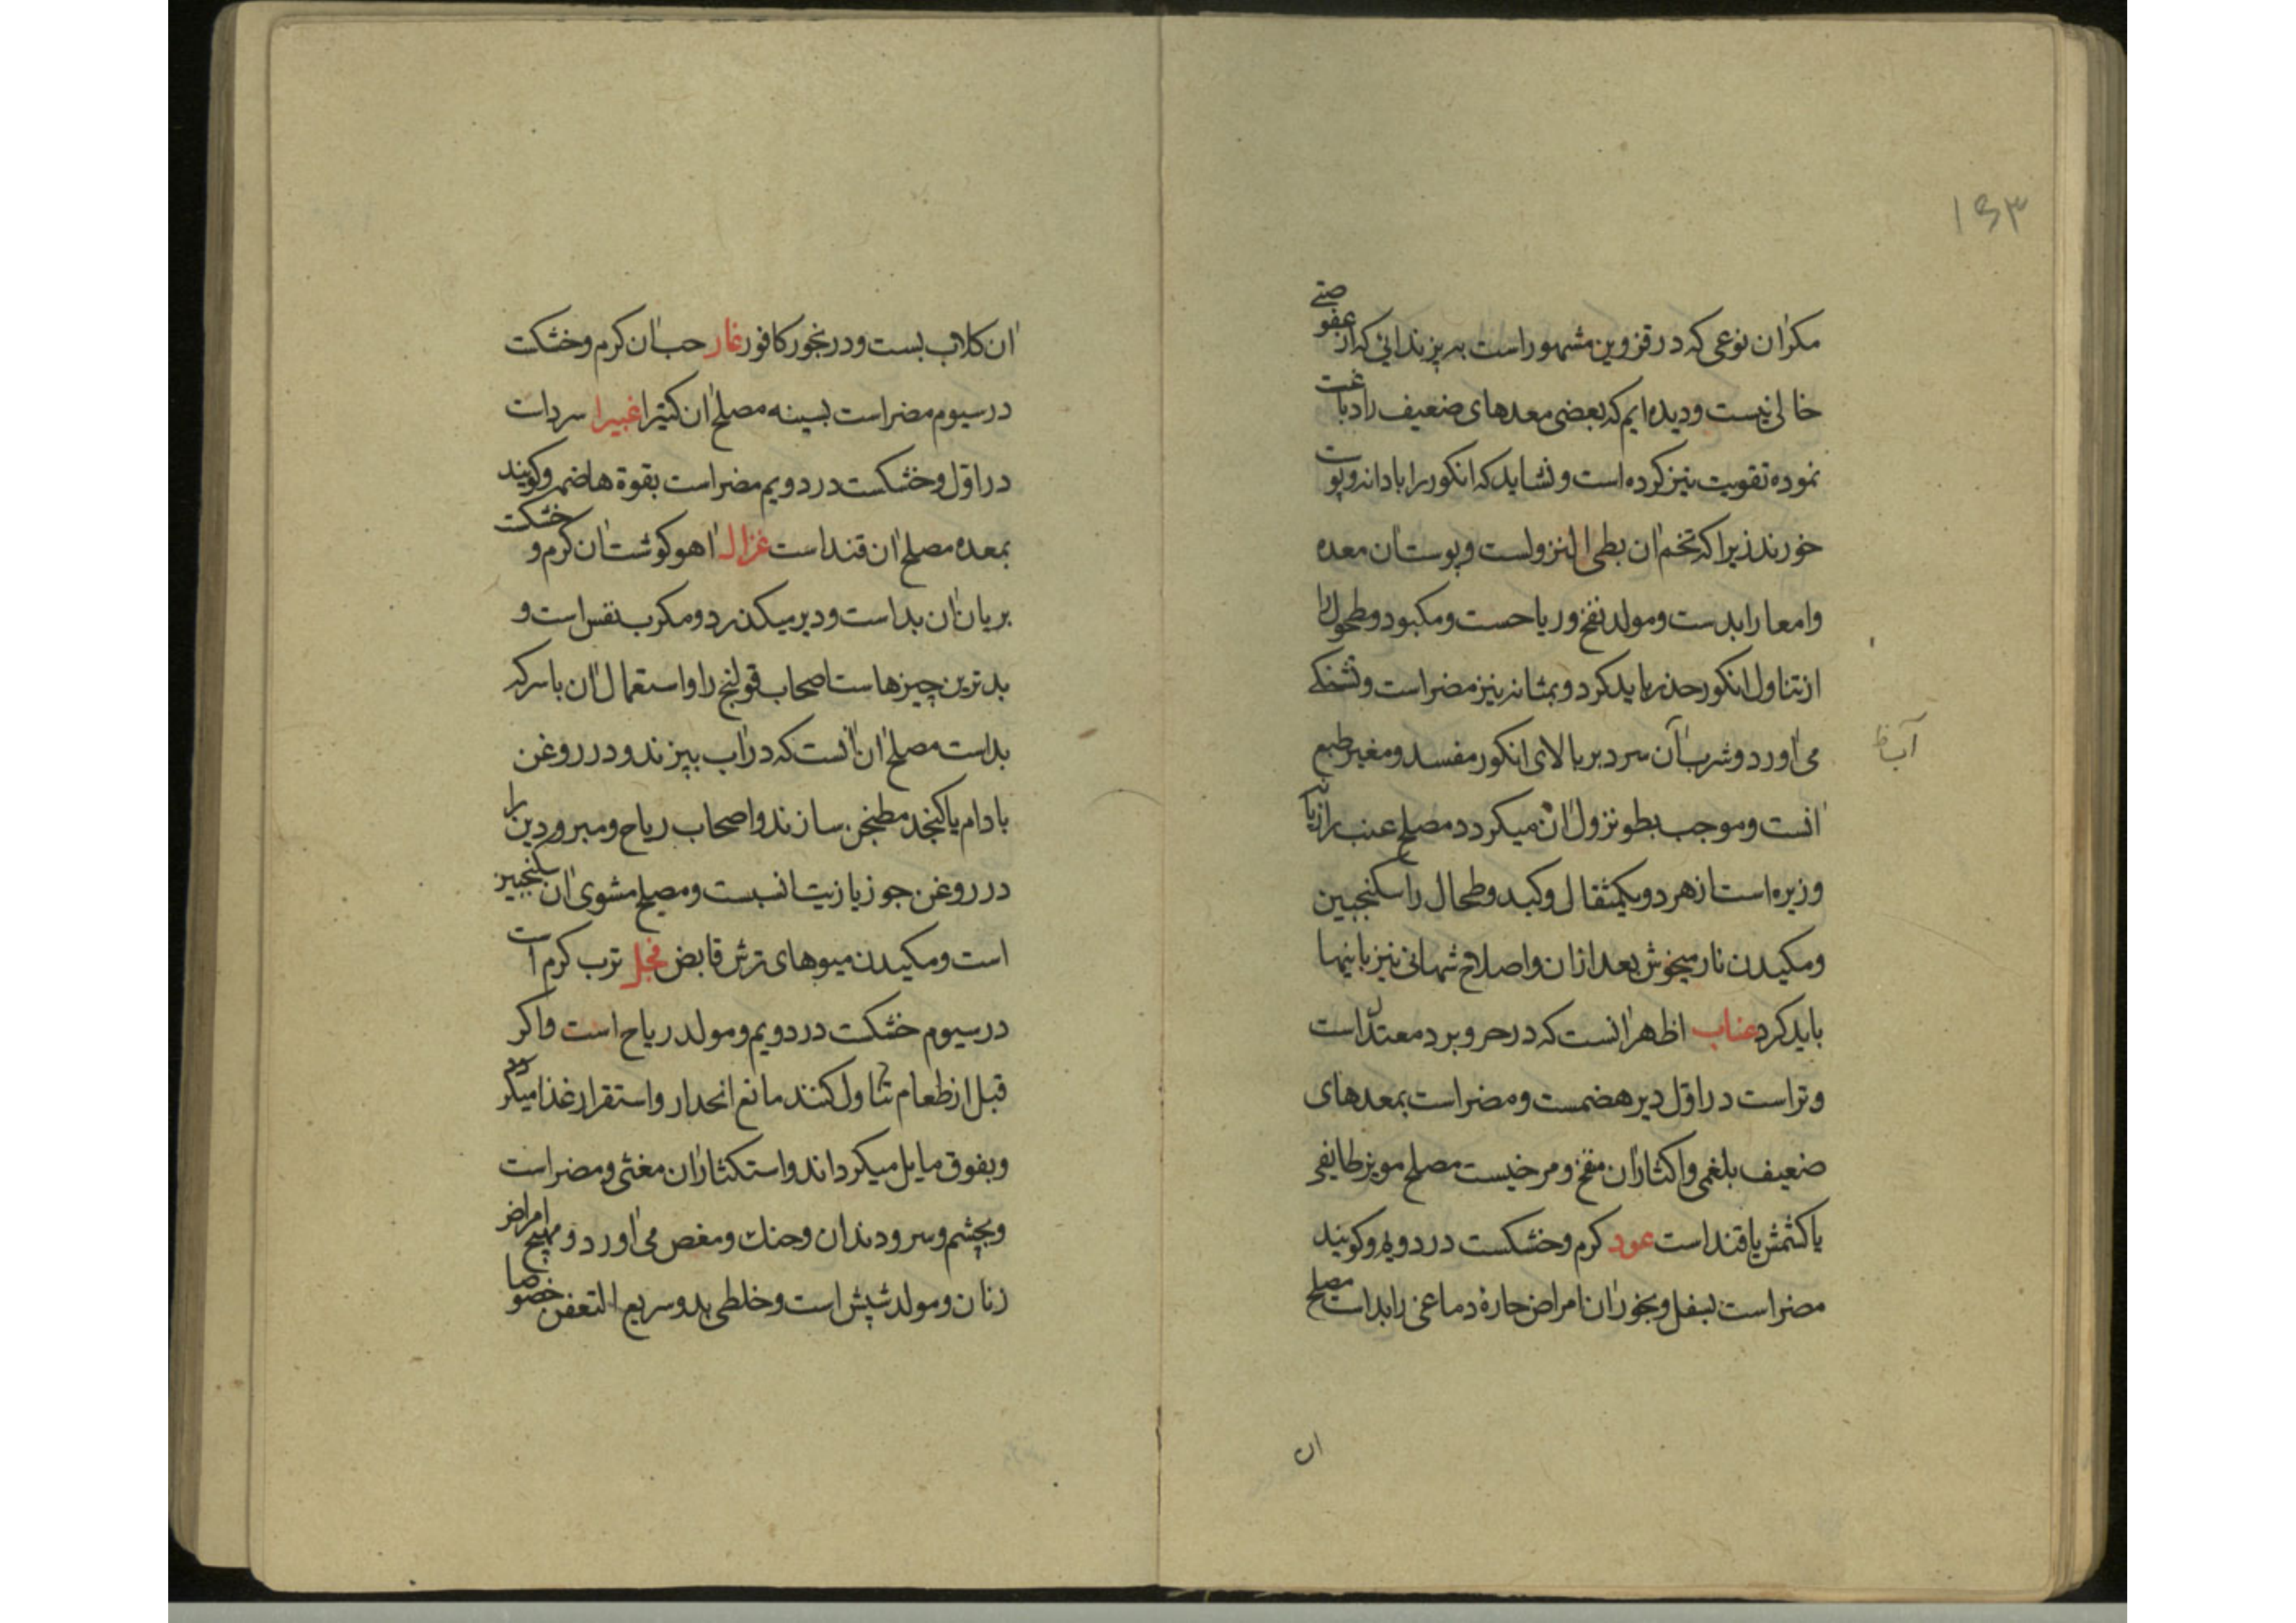 ۱۶۳
مکر ان نوعی که در قزوین مشهور است به پزندانی که از عفوصتی
خالی نیست و دیده ایم که بعضی معدهای ضعیف را دباغت
نموده تقویت نیز کرده است و نشاید که انکور را با دانه و پوست
خورند زیرا که تخم ان بطی النزولست و پوست ان معده
وامعا را بدست و مولد نفخ و ریاحست و مکبود و مطحول را
از تناول انکور حذر باید کرد و بمثانه نیز مضر است و تشنکی
می اورد و شرب آن سرد بر بالای انکور مفسد و مغیر طبع
آب ظ
انست و موجب بطو نزول ان میکردد مصلح عنب رازیانه
و زیره است از هر دو یکمثقال و کبد و طحال را سکنجبین
و مکیدن نار میخوش بعد از ان و اصلاح شهانی نیز باینها
باید کرد عناب اظهر انست که در حر و برد معتدل است
و تر است در اوّل دیر هضمست و مضر است بمعدهای
ضعیف بلغمی و اکثار ان منفخ و مرخیست مصلح مویز طایفی
یا کشمش یا قند است عود کرم و خشکست در دویم و کویند
مضر است بسفل و بخور ان امراض حارهٔ دماغی را بد است مصلح
ان
ان کلاب بست و در بخور کافور غار حب ان کرم و خشکست
در سیوم مضر است بسینه مصلح ان کتیرا غبیرا سرد است
در اوّل و خشکست در دویم مضر است بقوة هاضمه و کویند
بمعده مصلح ان قند است غزال اهو کوشت ان کرم و خشکست
بریان ان بد است و دیر میکذرد و مکرب نفس است و
بدترین چیزهاست اصحاب قولنج را و استعمال ان با سرکه
بد است مصلح ان انست که در اب بپزند و در روغن
بادام یا کنجد مطنجن سازند و اصحاب ریاح و مبرودین را
در روغن جوز یا زیت انسبست و مصلح مشوی ان سکنجبین
است و مکیدن میوهای ترش قابض فجل ترب کرم است
در سیوم خشکست در دویم و مولد ریاح است و اکر
قبل از طعام تناول کنند مانع انحدار و استقرار غذا میکردد
و بفوق مایل میکرداند و استکثار ان مغثی و مضر است
و بچشم و سر و دندان و حنك و مغص می اورد و مهیج امراض
زنان و مولد شپش است و خلطی بد و سریع التعفن خصوصا